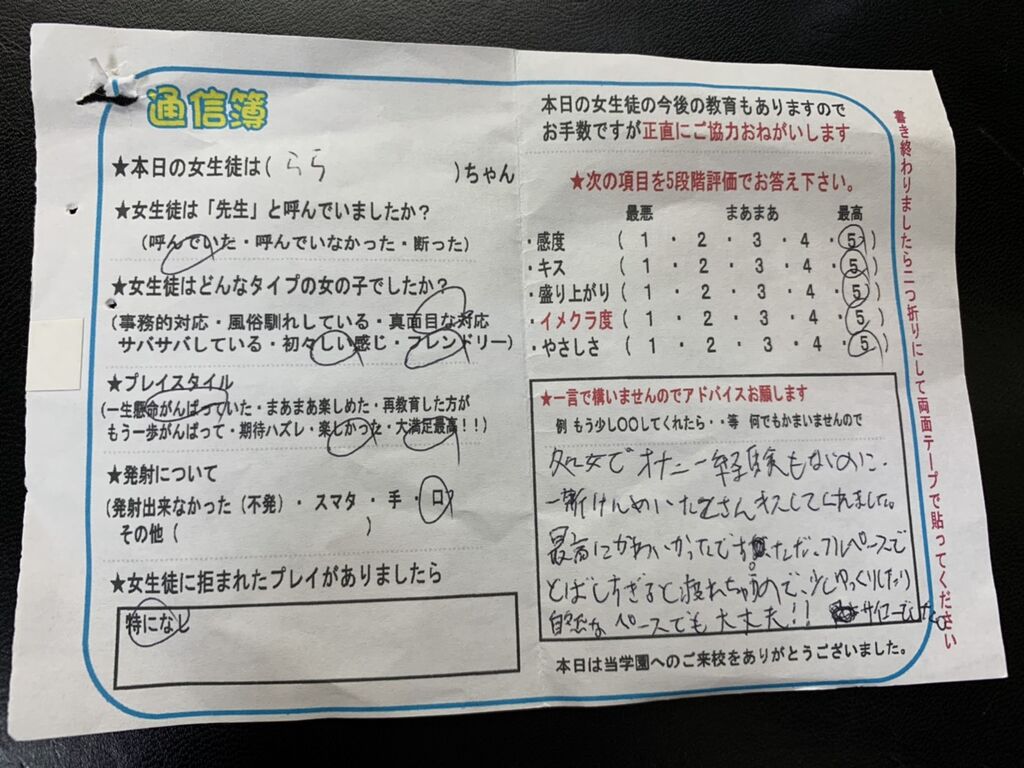 通信簿
★本日の女生徒は(らら)ちゃん
★女生徒は「先生」と呼んでいましたか?
(呼んでいた・呼んでいなかった・断った)
★女生徒はどんなタイプの女の子でしたか?
(事務的対応・風俗馴れしている・真面目な対応
サバサバしている・初々しい感じ・フレンドリー)
★プレイスタイル
(一生懸命がんばっていた・まあまあ楽しめた・再教育した方が
もう一歩がんばって・期待ハズレ・楽しかった・大満足最高!!)
★発射について
(発射出来なかった(不発)・スマタ・手・口)
その他( )
★女生徒に拒まれたプレイがありましたら
特になし
本日の女生徒の今後の教育もありますので
お手数ですが正直にご協力おねがいします
★次の項目を5段階評価でお答え下さい。
最悪 まあまあ 最高
・感度 (1・2・3・4・5)
・キス (1・2・3・4・5)
・盛り上がり (1・2・3・4・5)
・イメクラ度 (1・2・3・4・5)
・やさしさ (1・2・3・4・5)
★一言で構いませんのでアドバイスお願します
例 もう少し〇〇してくれたら・・等 何でもかまいませんので
処女でオナニー経験もないのに、
一所けんめいたくさんキスしてくれました。
最高にかわいかったです。ただ、フルペースで
とばしすぎると疲れちゃうので、少しゆっくりしたり
自然なペースでも大丈夫!! サイコーでした。
本日は当学園へのご来校をありがとうございました。
書き終わりましたら二つ折りにして両面テープで貼ってください